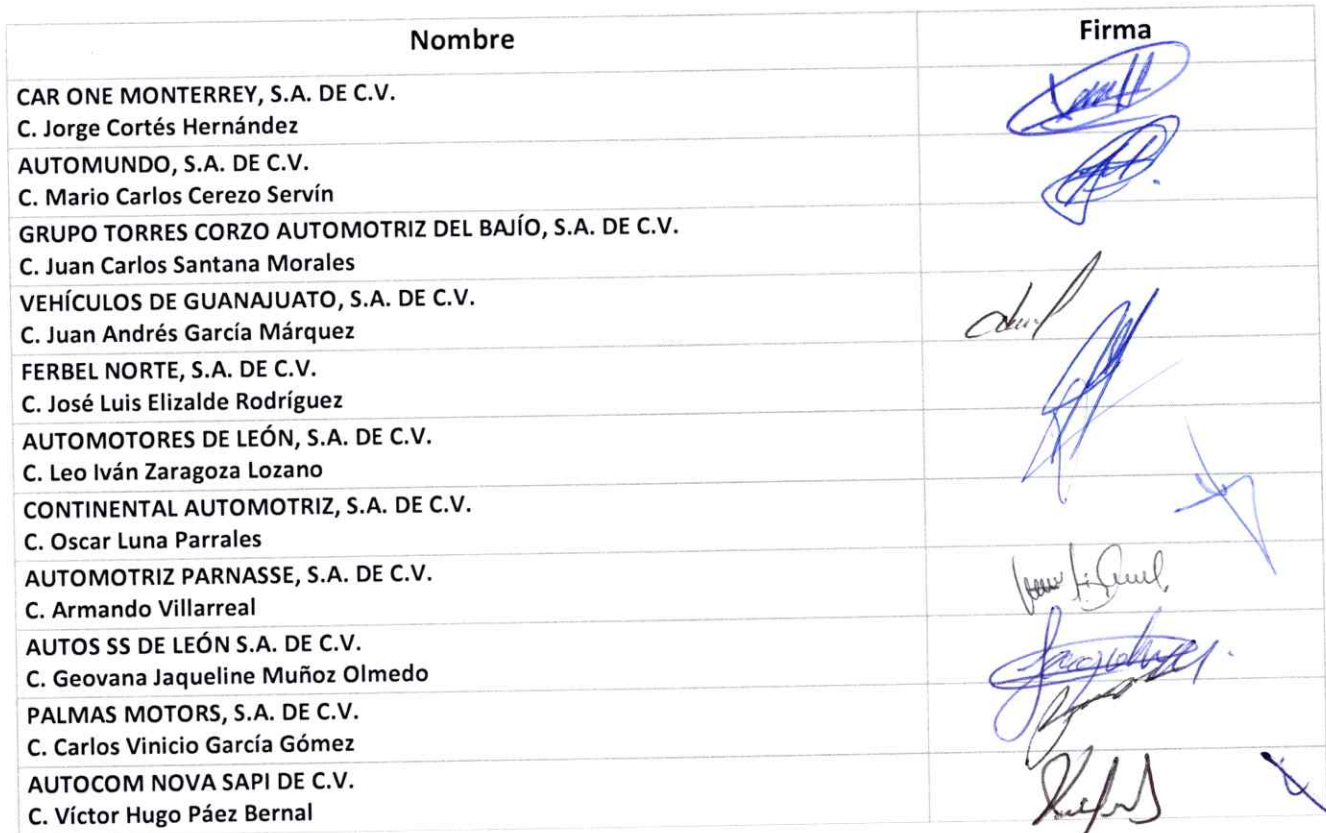 Nombre
Firma
CAR ONE MONTERREY, S.A. DE C.V.
C. Jorge Cortés Hernández
AUTOMUNDO, S.A. DE C.V.
C. Mario Carlos Cerezo Servín
GRUPO TORRES CORZO AUTOMOTRIZ DEL BAJÍO, S.A. DE C.V.
C. Juan Carlos Santana Morales
VEHÍCULOS DE GUANAJUATO, S.A. DE C.V.
C. Juan Andrés García Márquez
FERBEL NORTE, S.A. DE C.V.
C. José Luis Elizalde Rodríguez
AUTOMOTORES DE LEÓN, S.A. DE C.V.
C. Leo Iván Zaragoza Lozano
CONTINENTAL AUTOMOTRIZ, S.A. DE C.V.
C. Oscar Luna Parrales
AUTOMOTRIZ PARNASSE, S.A. DE C.V.
C. Armando Villarreal
AUTOS SS DE LEÓN S.A. DE C.V.
C. Geovana Jaqueline Muñoz Olmedo
PALMAS MOTORS, S.A. DE C.V.
C. Carlos Vinicio García Gómez
AUTOCOM NOVA SAPI DE C.V.
C. Víctor Hugo Páez Bernal